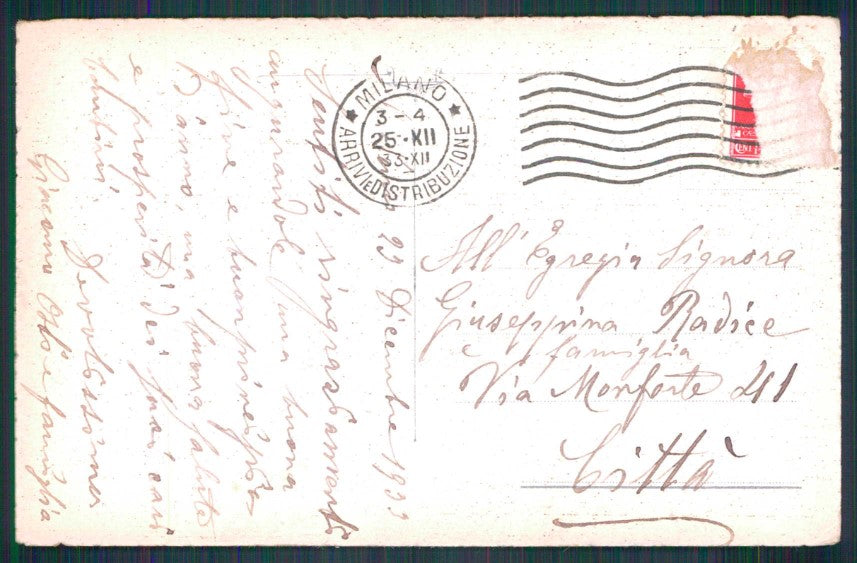 MILANO
3-4
25·XII
33·XII
ARRIVI E DISTRIBUZIONE
CENT
23 Dicembre 1933
Sentiti ringraziamenti
augurandole una buona
fine e buon principio
D'anno, una buona salute
e prosperità dei suoi cari
bambini
Devotissima
Giacomo e famiglia
All' Egregia Signora
Giuseppina Radice
e famiglia
Via Monforte 41
Città